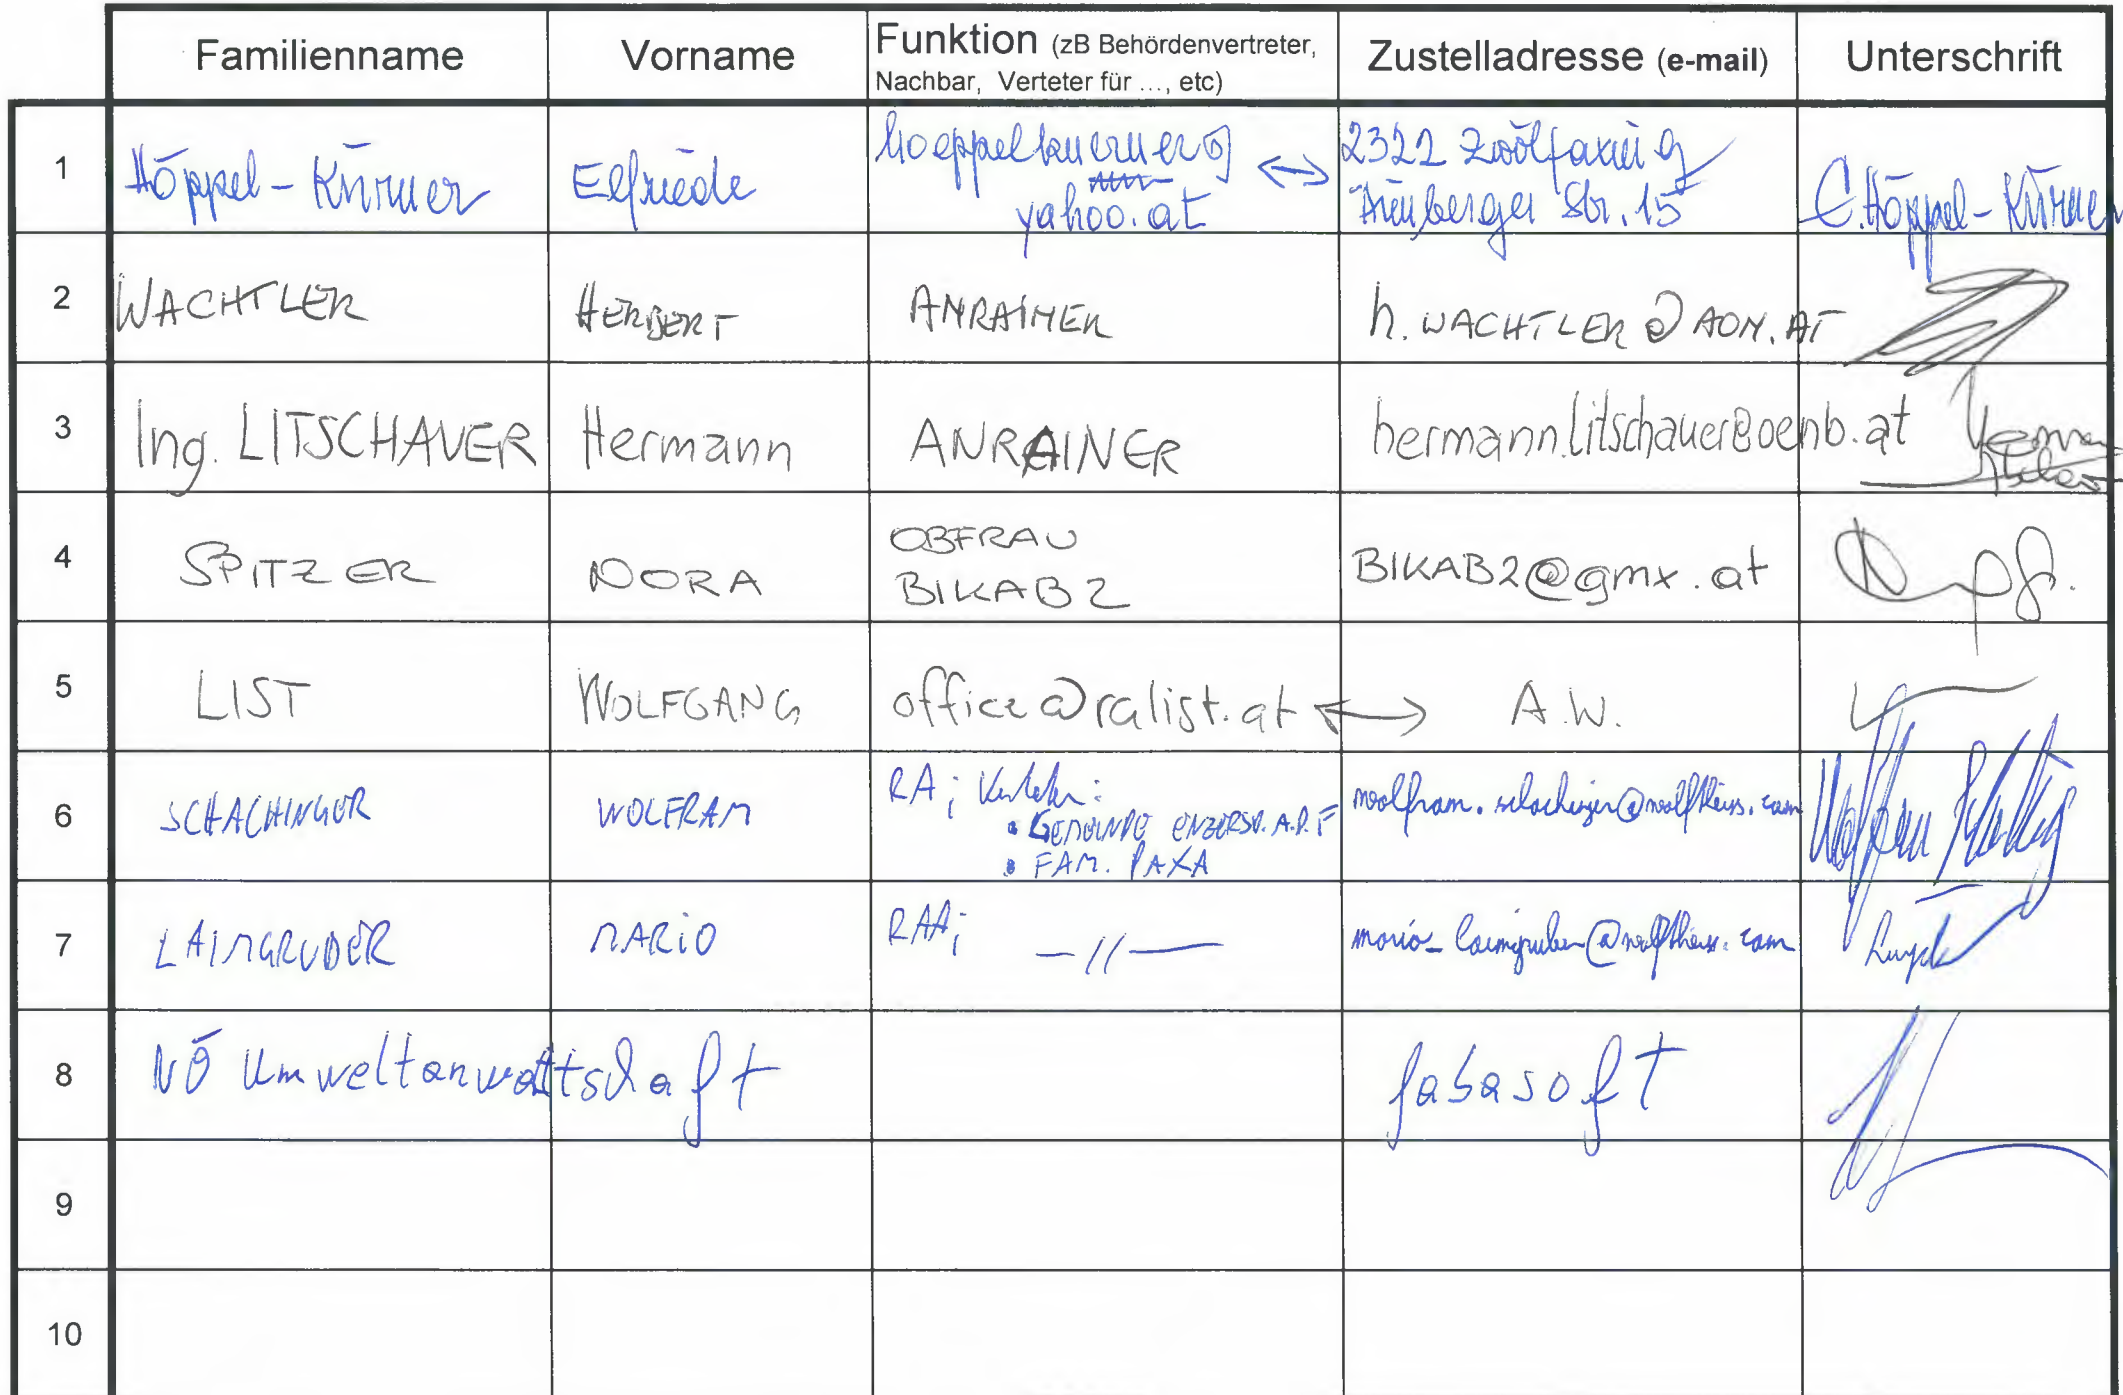 Familienname Vorname Funktion (zB Behördenvertreter, Nachbar, Verteter für ..., etc) Zustelladresse (e-mail) Unterschrift
1 Höppel-Kürner Elfriede hoeppelkuerner@ ↔ 2322 Zwölfaxing
yahoo.at Str. 15 E. Höppel-Kürner
2 WACHTLER HERBERT ANRAINER h.WACHTLER@AON.AT
3 Ing. LITSCHAUER Hermann ANRAINER hermann.litschauer@oenb.at
4 SPITZER NORA OBFRAU
BIKAB2 BIKAB2@gmx.at
5 LIST WOLFGANG office@ralist.at ↔ A.W.
6 SCHACHINGER WOLFRAM RA;
• GEMEINDE ENZERSD. A.D.F
• FAM. PAXA
wolfram.schachinger@wolftheiss.com
7 LAIMGRUBER MARIO RAA; —//— mario.laimgruber@wolftheiss.com
8 NÖ Umweltanwaltschaft fabasoft
9
10